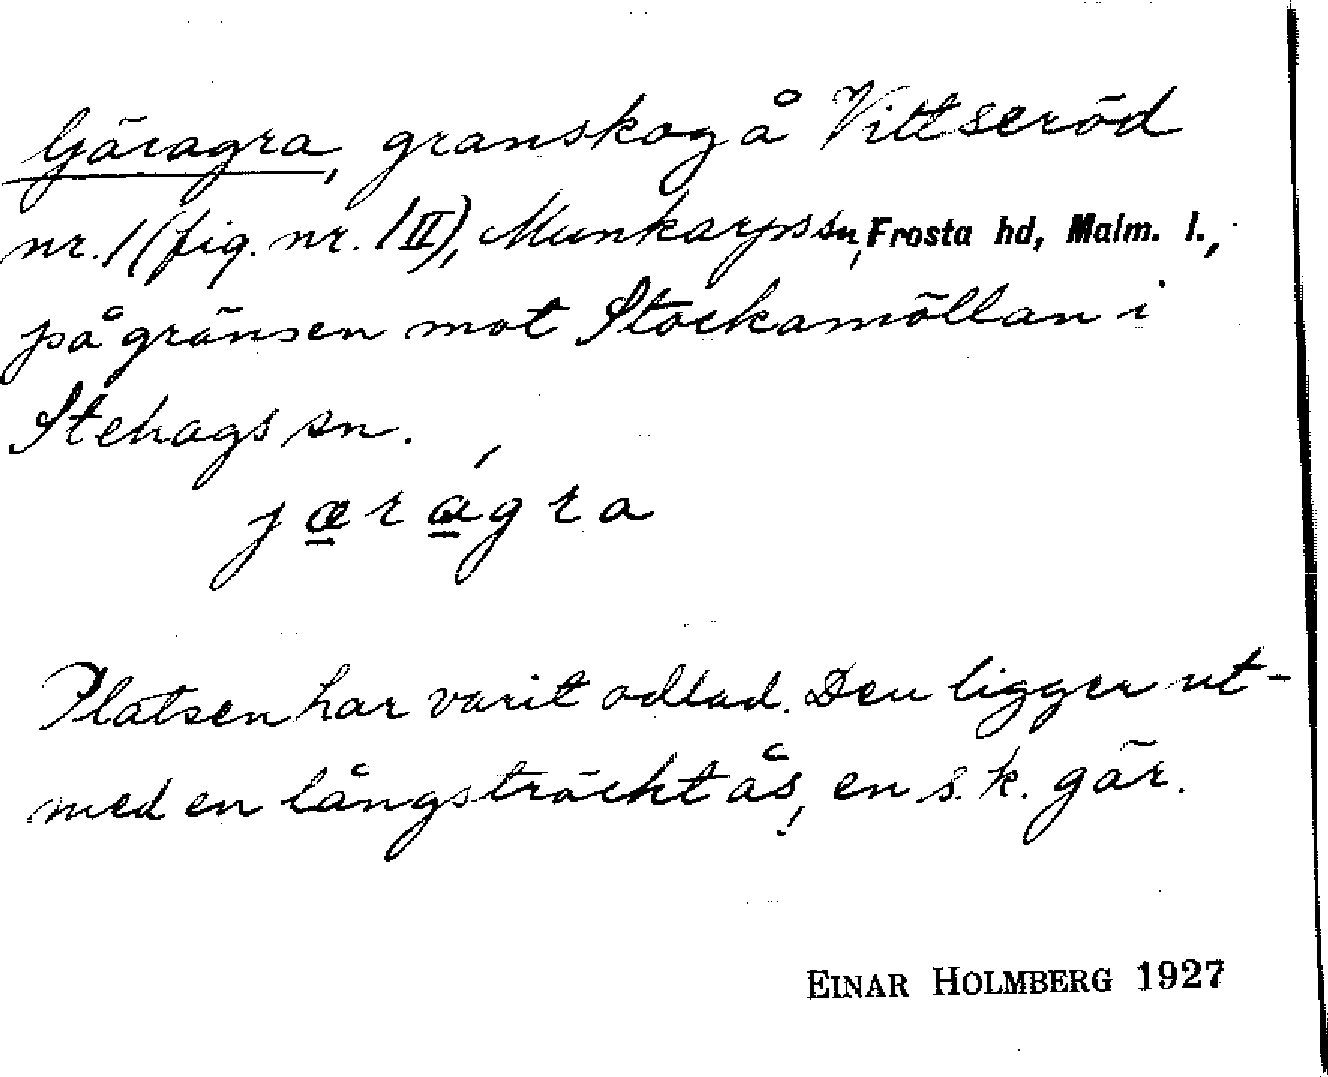 Gäragra, granskog å Vittseröd
nr. 1 (fig. nr. 1 II), Munkarps sn, Frosta hd, Malm. l.,
på gränsen mot Stockamöllan i
Stehags sn.
jærágra
Platsen har varit odlad. Den ligger ut-
med en långsträckt ås, en s.k. gär.
EINAR HOLMBERG 1927